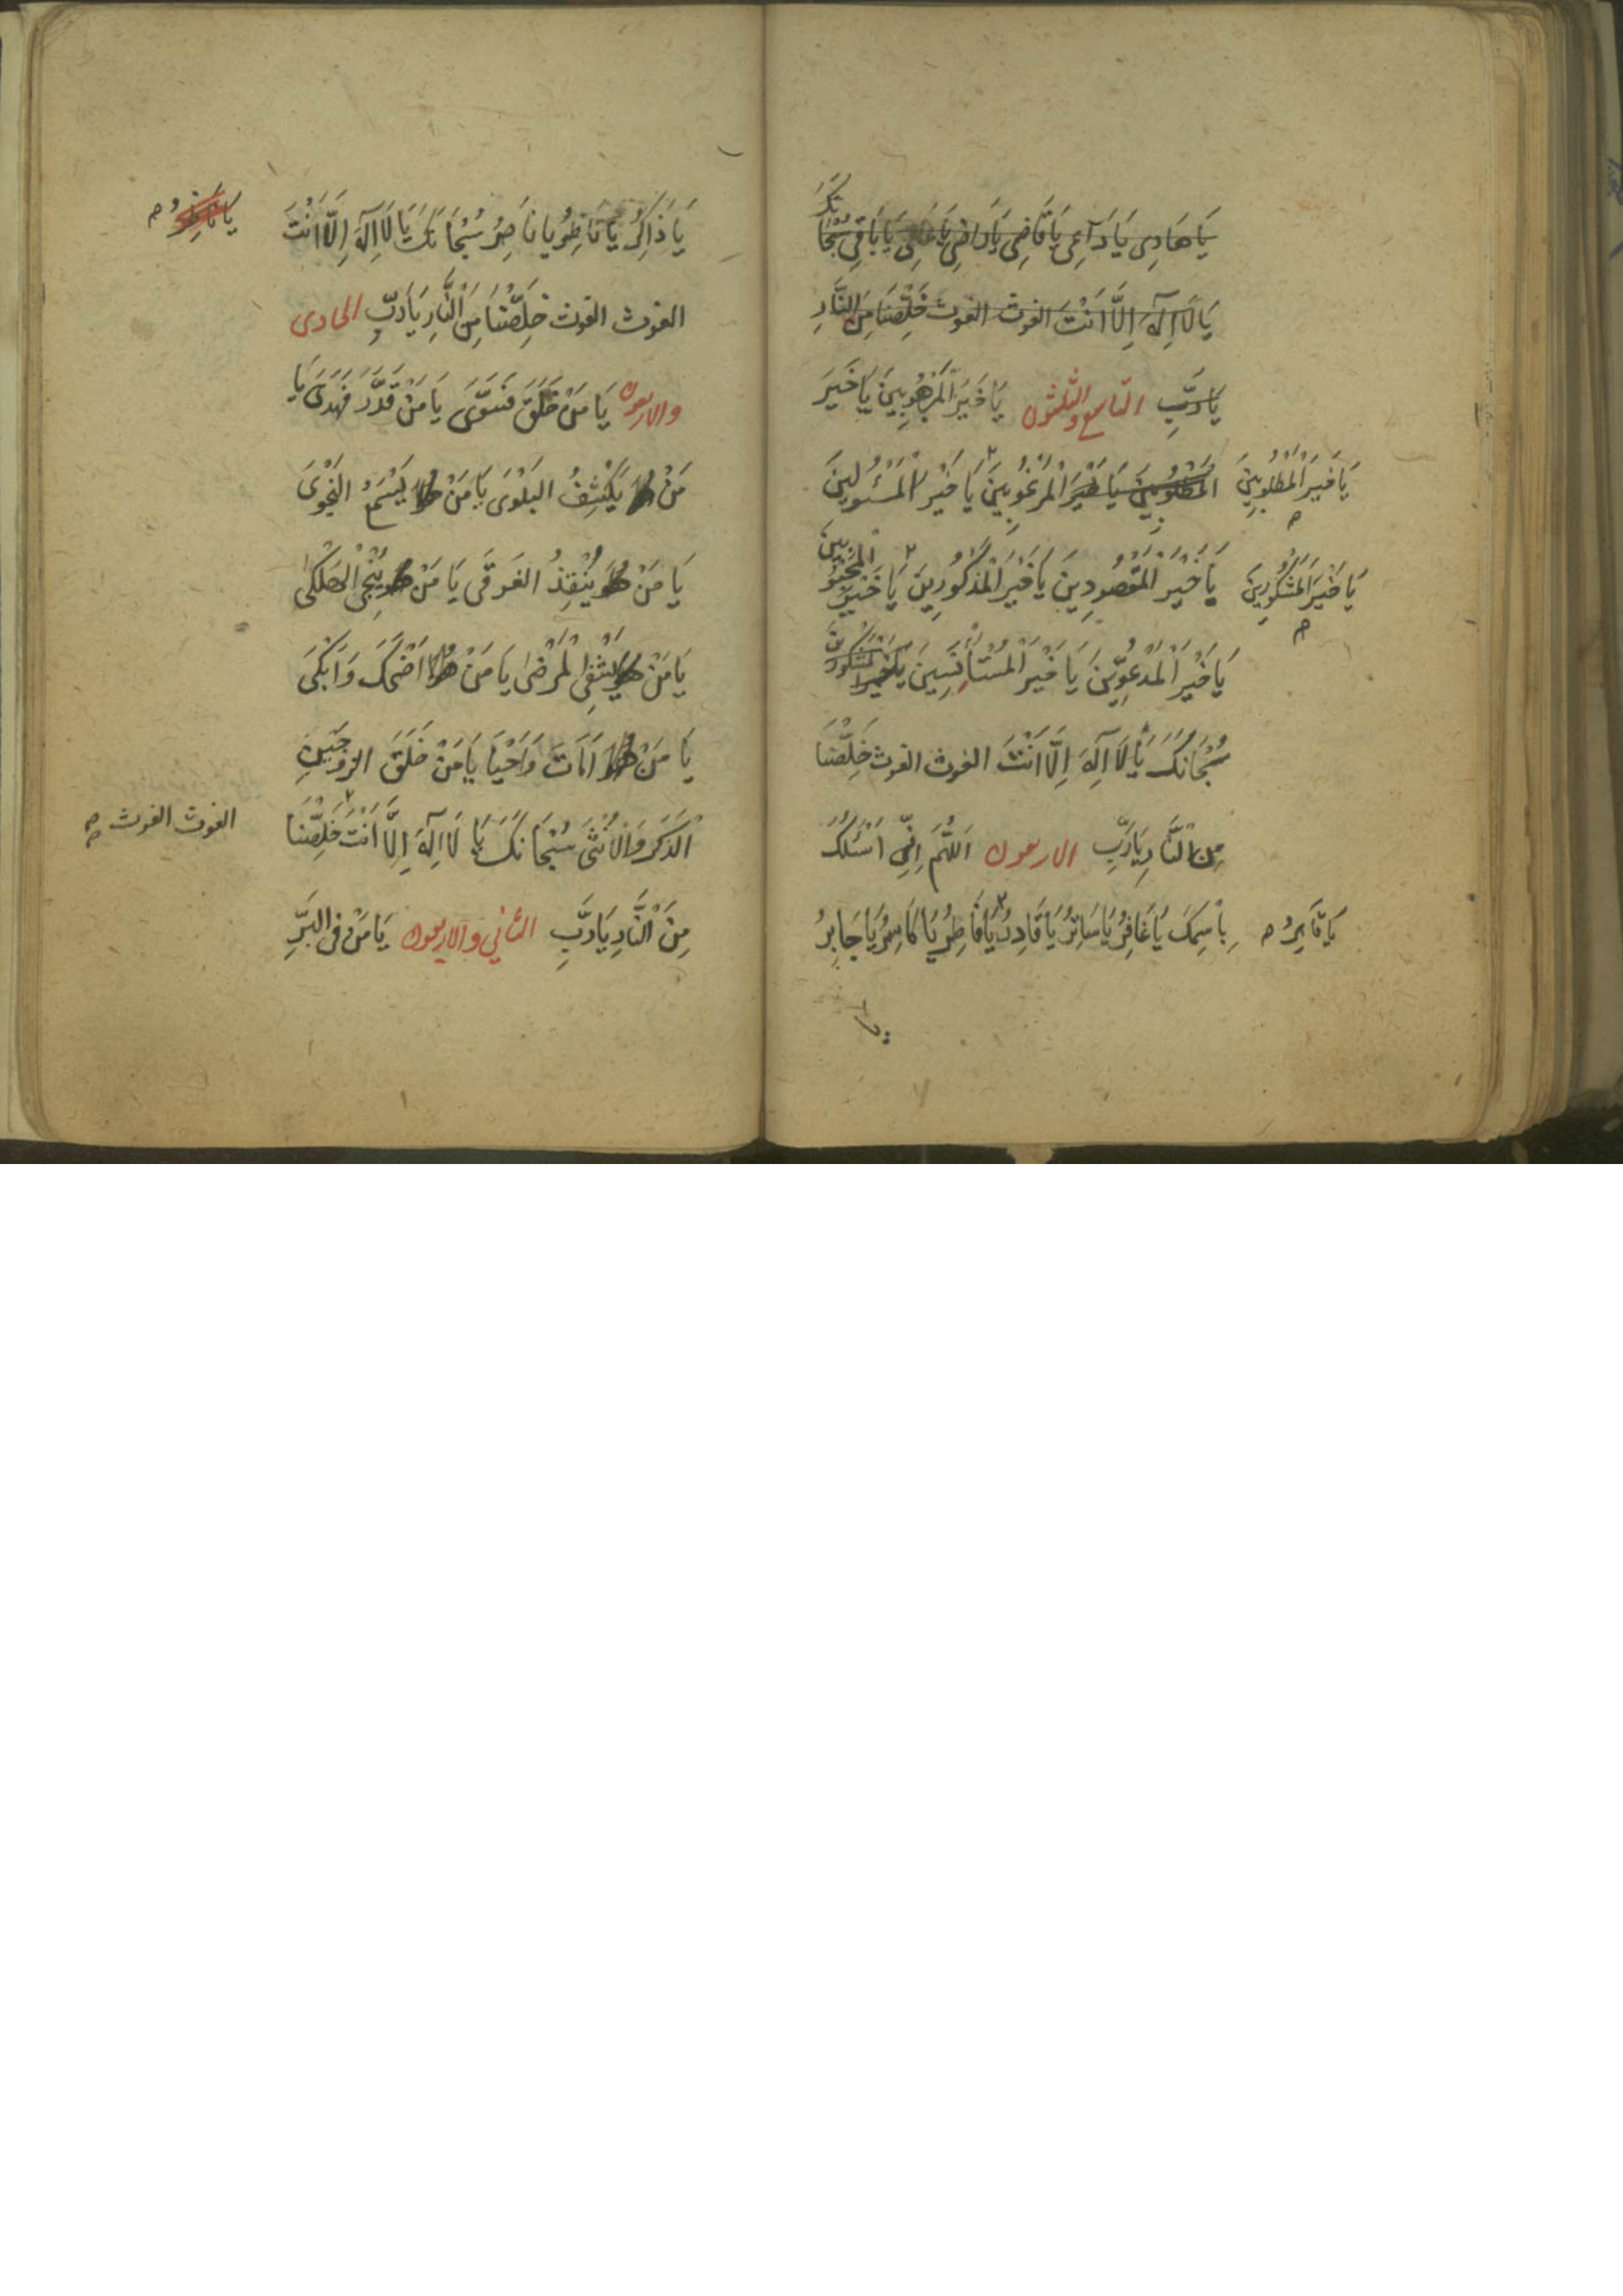 يَا هَادِى يَا دَاعِى يَا قَاضِى يَا رَاضِى يَا عَالِى يَا بَاقِى سُبْحَانَكَ
يَا لَا اِلٰهَ اِلَّا اَنْتَ الغوث الغوث خَلِّصْنَا مِنَ النَّارِ
يَا رَبِّ التاسع والثلثون يَا خَيْرَ الْمَرْهُوبِينَ يَا خَيْرَ
الْمَطْلُوبِينَ يَا خَيْرَ الْمَرْغُوبِينَ يَا خَيْرَ الْمَسْئُولِينَ
يَا خَيْرَ الْمَطْلُوبِينَ
يَا خَيْرَ الْمَقْصُودِينَ يَا خَيْرَ الْمَذْكُورِينَ يَا خَيْرَ الْمَحْبُوبِينَ
يَا خَيْرَ الْمَشْكُورِينَ
يَا خَيْرَ الْمَدْعُوِّينَ يَا خَيْرَ الْمُسْتَأْنِسِينَ يَا خَيْرَ الْمَشْكُورِينَ
سُبْحَانَكَ يَا لَا اِلٰهَ اِلَّا اَنْتَ الغوث الغوث خَلِّصْنَا
مِنَ النَّارِ يَا رَبِّ الاربعون اَللّٰهُمَّ اِنِّى اَسْئَلُكَ
بِاسْمِكَ يَا غَافِرُ يَا سَاتِرُ يَا قَادِرُ يَا فَاطِرُ يَا كَاسِرُ يَا جَابِرُ
يَا قَاهِرُ
يَا ذَاكِرُ يَا نَاظِرُ يَا نَاصِرُ سُبْحَانَكَ يَا لَا اِلٰهَ اِلَّا اَنْتَ
الغوث الغوث خَلِّصْنَا مِنَ النَّارِ يَا رَبِّ الحادى
والاربعون يَا مَنْ خَلَقَ فَسَوَّى يَا مَنْ قَدَّرَ فَهَدَى يَا
مَنْ يَكْشِفُ الْبَلْوَى يَا مَنْ يَسْمَعُ النَّجْوَى
يَا مَنْ يُنْقِذُ الْغَرْقَى يَا مَنْ يُنْجِى الْهَلْكَى
يَا مَنْ يَشْفِى الْمَرْضَى يَا مَنْ اَضْحَكَ وَاَبْكَى
يَا مَنْ اَمَاتَ وَاَحْيَا يَا مَنْ خَلَقَ الزَّوْجَيْنِ
الذَّكَرَ وَالْاُنْثَى سُبْحَانَكَ يَا لَا اِلٰهَ اِلَّا اَنْتَ خَلِّصْنَا
الغوث الغوث
مِنَ النَّارِ يَا رَبِّ الثانى والاربعون يَا مَنْ فِى الْبَرِّ